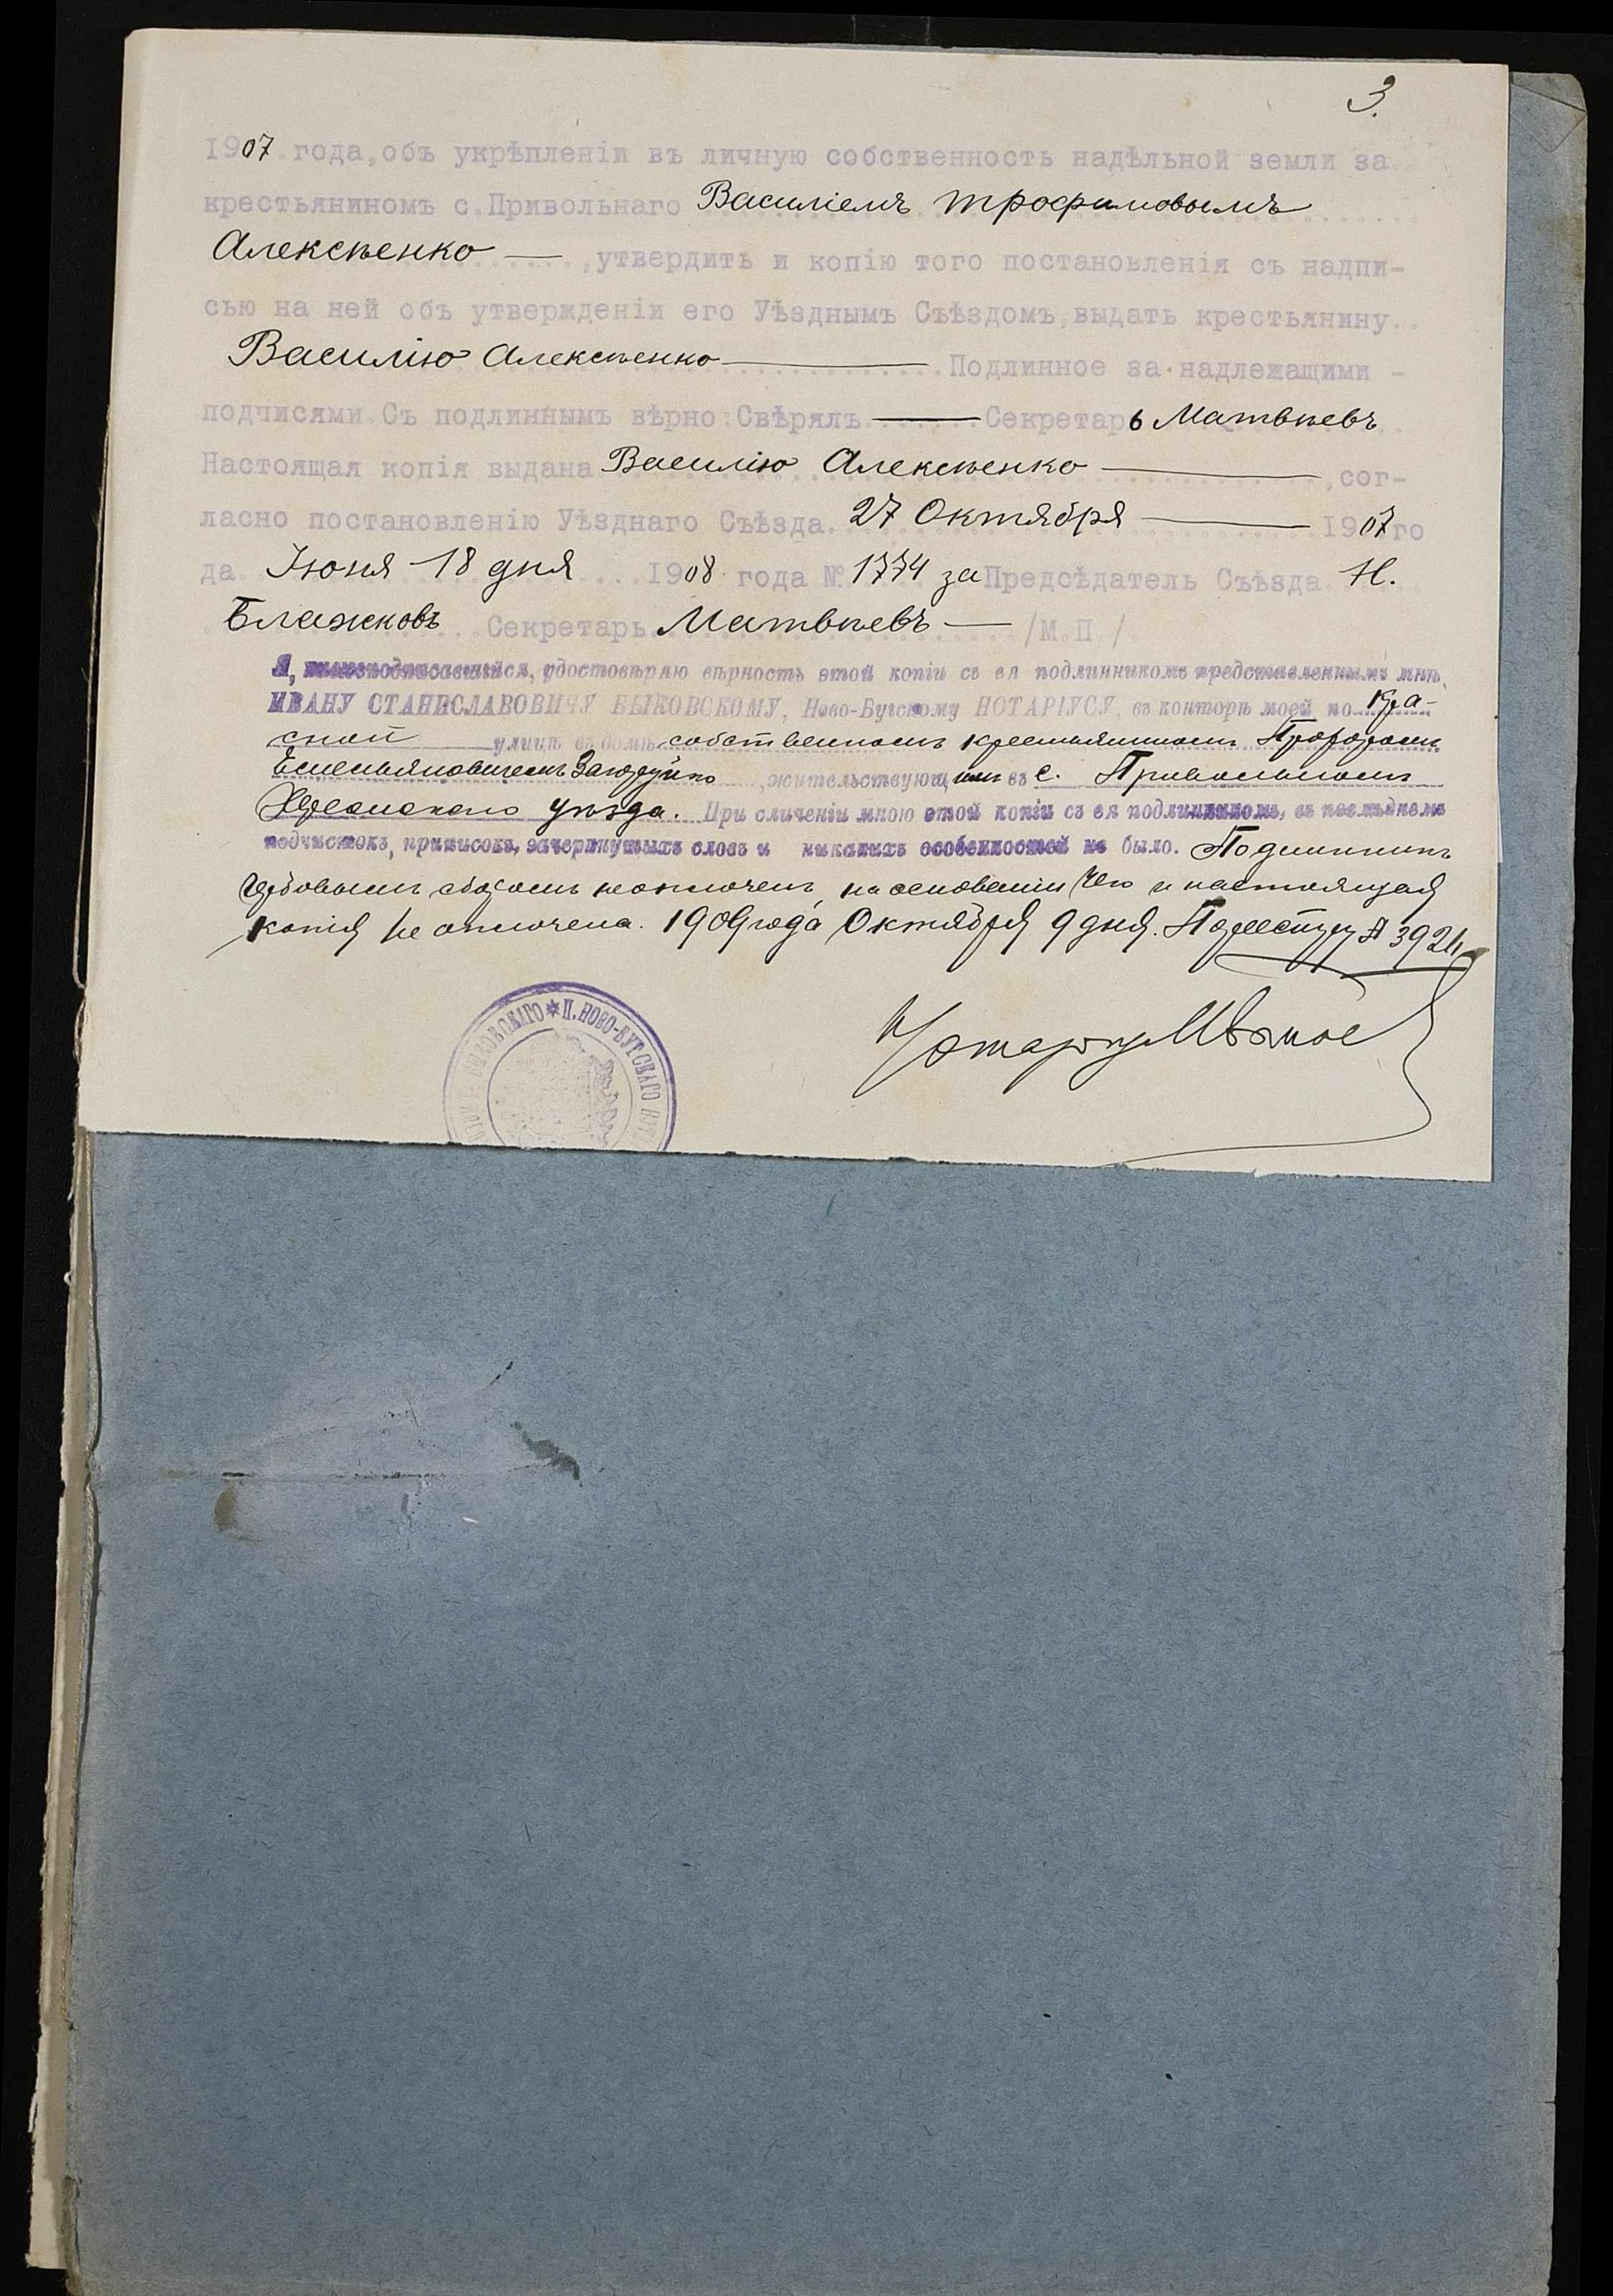 3.
1907 года, объ укрѣпленіи въ личную собственность надѣльной земли за
крестьяниномъ с. Привольнаго Василіемъ Трофимовымъ
Алексѣенко — , утвердить и копію того постановленія съ надпи-
сью на ней объ утвержденіи его Уѣзднымъ Съѣздомъ, выдать крестьянину
Василію Алексѣенко — Подлинное за надлежащими -
подписями. Съ подлиннымъ вѣрно: Свѣрялъ — Секретарь Матвѣевъ
Настоящая копія выдана Василію Алексѣенко — , сог-
ласно постановленію Уѣзднаго Съѣзда. 27 Октября — 1907 го
да Іюня 18 дня 1908 года № 1774 за Предсѣдатель Съѣзда Н.
Блажковъ Секретарь Матвѣевъ — /М.П./
Я, нижеподписавшійся, удостовѣряю вѣрность этой копіи съ ея подлинникомъ представленнымъ мнѣ,
ИВАНУ СТАНИСЛАВОВИЧУ БЫКОВСКОМУ, Ново-Бугскому НОТАРІУСУ, въ конторѣ моей по Кра-
сной улицѣ въ домѣ собственномъ крестьяниномъ Прохоромъ
Емельяновичемъ , жительствующимъ въ с. Привольномъ
Херсонскаго уѣзда. При сличеніи мною этой копіи съ ея подлинникомъ, въ послѣднемъ
подчистокъ, приписокъ, зачеркнутыхъ словъ и никакихъ особенностей не было. Подлинникъ
гербовымъ сборомъ не оплоченъ, на основаніи чего и настоящая
копія не оплочена. 1909 года Октября 9 дня. По реестру № 3924
Нотаріусъ
✱ Н. НОВО-БУГСКАГО